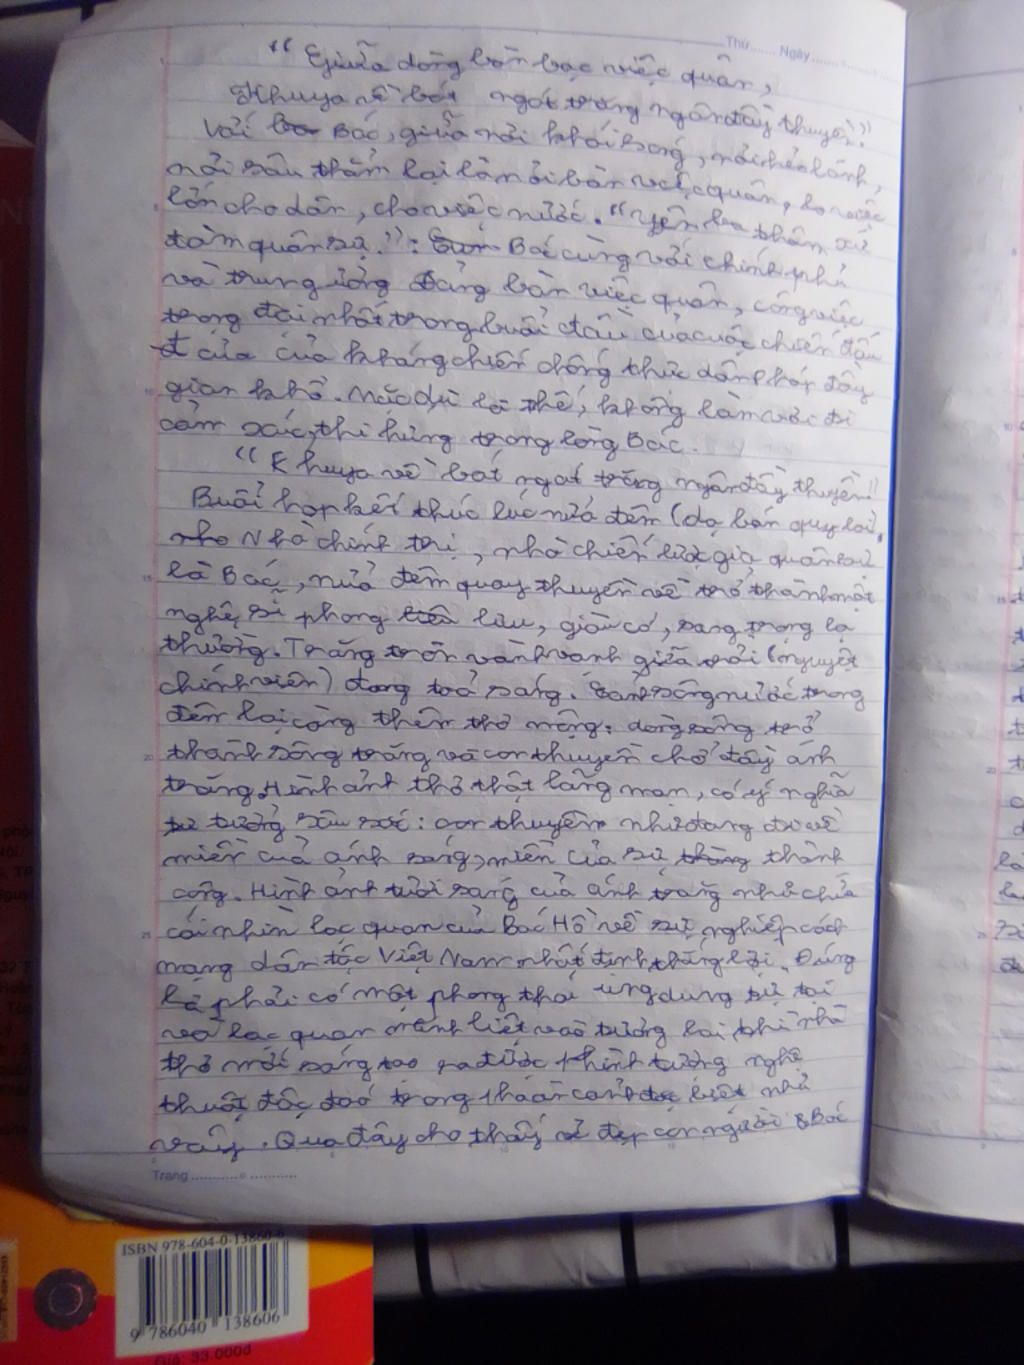 Thứ...... Ngày......
" Giữa dòng bàn bạc việc quân,
Khuya về bát ngát trăng ngân đầy thuyền."
Với Bác, giữa nơi khói sóng, nơi hẻo lánh,
nơi sâu thẳm lại là nơi bàn việc quân, lo việc
lớn cho dân, cho việc nước. "Yên ba thâm xứ
đàm quân sự.": Bác cùng với chính phủ
và trung ương Đảng bàn việc quân, công việc
trọng đại nhất trong buổi đầu của cuộc chiến đấu
của của kháng chiến chống thực dân Pháp đầy
gian khổ. Mặc dù là thế, không làm vơi đi
cảm xúc, thi hứng trong lòng Bác.
" Khuya về bát ngát trăng ngân đầy thuyền"
Buổi họp kết thúc lúc nửa đêm (dạ bán quy lai,
Nhà chính trị, nhà chiến lược gia quân sự
là Bác, nửa đêm quay thuyền về trở thành một
nghệ sĩ phong lưu, giàu có, sang trọng lạ
thường. Trăng tròn vành vạnh giữa trời (nguyệt
chính viên) đang toả sáng. sông nước trong
đêm lại càng thêm thơ mộng: dòng sông trở
thành sông trăng và con thuyền chở đầy ánh
trăng. Hình ảnh thơ thật lãng mạn, có ý nghĩa
tư tưởng sâu sắc: con thuyền như đang đi về
miền của ánh sáng, miền của sự thành
công. Hình ảnh tươi sáng của ánh trăng như chứa
cái nhìn lạc quan của Bác Hồ về sự nghiệp cách
mạng dân tộc Việt Nam nhất định thắng lợi. Đúng
là phải có một phong thái ung dung tự tại
và lạc quan mãnh liệt vào tương lai thì nhà
thơ mới sáng tạo ra được hình tượng nghệ
thuật độc đáo trong hoàn cảnh đặc biệt như
vậy. Qua đây cho thấy vẻ đẹp con người Bác
Trang ............
ISBN 978-604-0-13860-6
9 786040 138606
Giá: 33.000đ